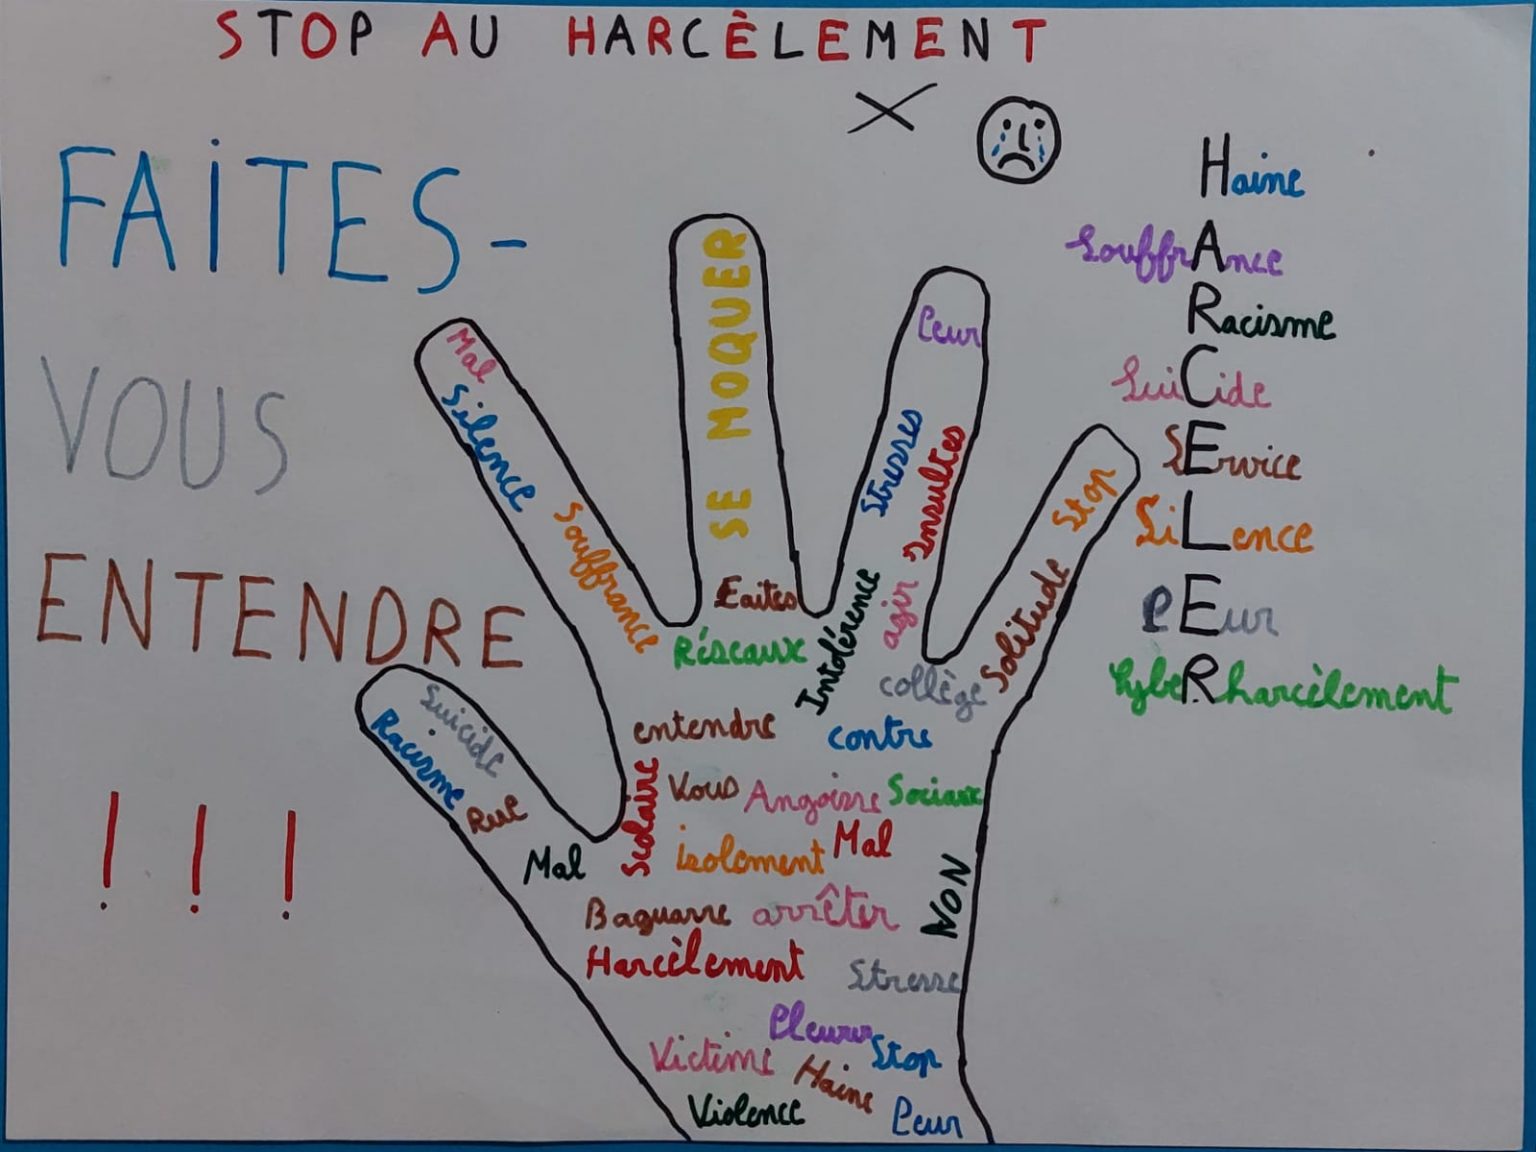 STOP AU HARCÈLEMENT
FAITES-
VOUS
ENTENDRE
! ! !
Haine
SouffrAnce
Racisme
SuiCide
SErvice
SiLence
PEur
CybeRharcèlement
Mal
Silence
Souffrance
SE MOQUER
Faites
Réseaux
Peur
Stresses
Insultes
Intolérence
agir
Stop
Solitude
collège
Suicide
Racisme
Rue
Mal
entendre
contre
Scolaire
Vous
Angoisse
Sociaux
isolement
Mal
Baguarre
arrêter
NON
Harcèlement
Stresse
Pleurer
Victime
Stop
Haine
Violence
Peur